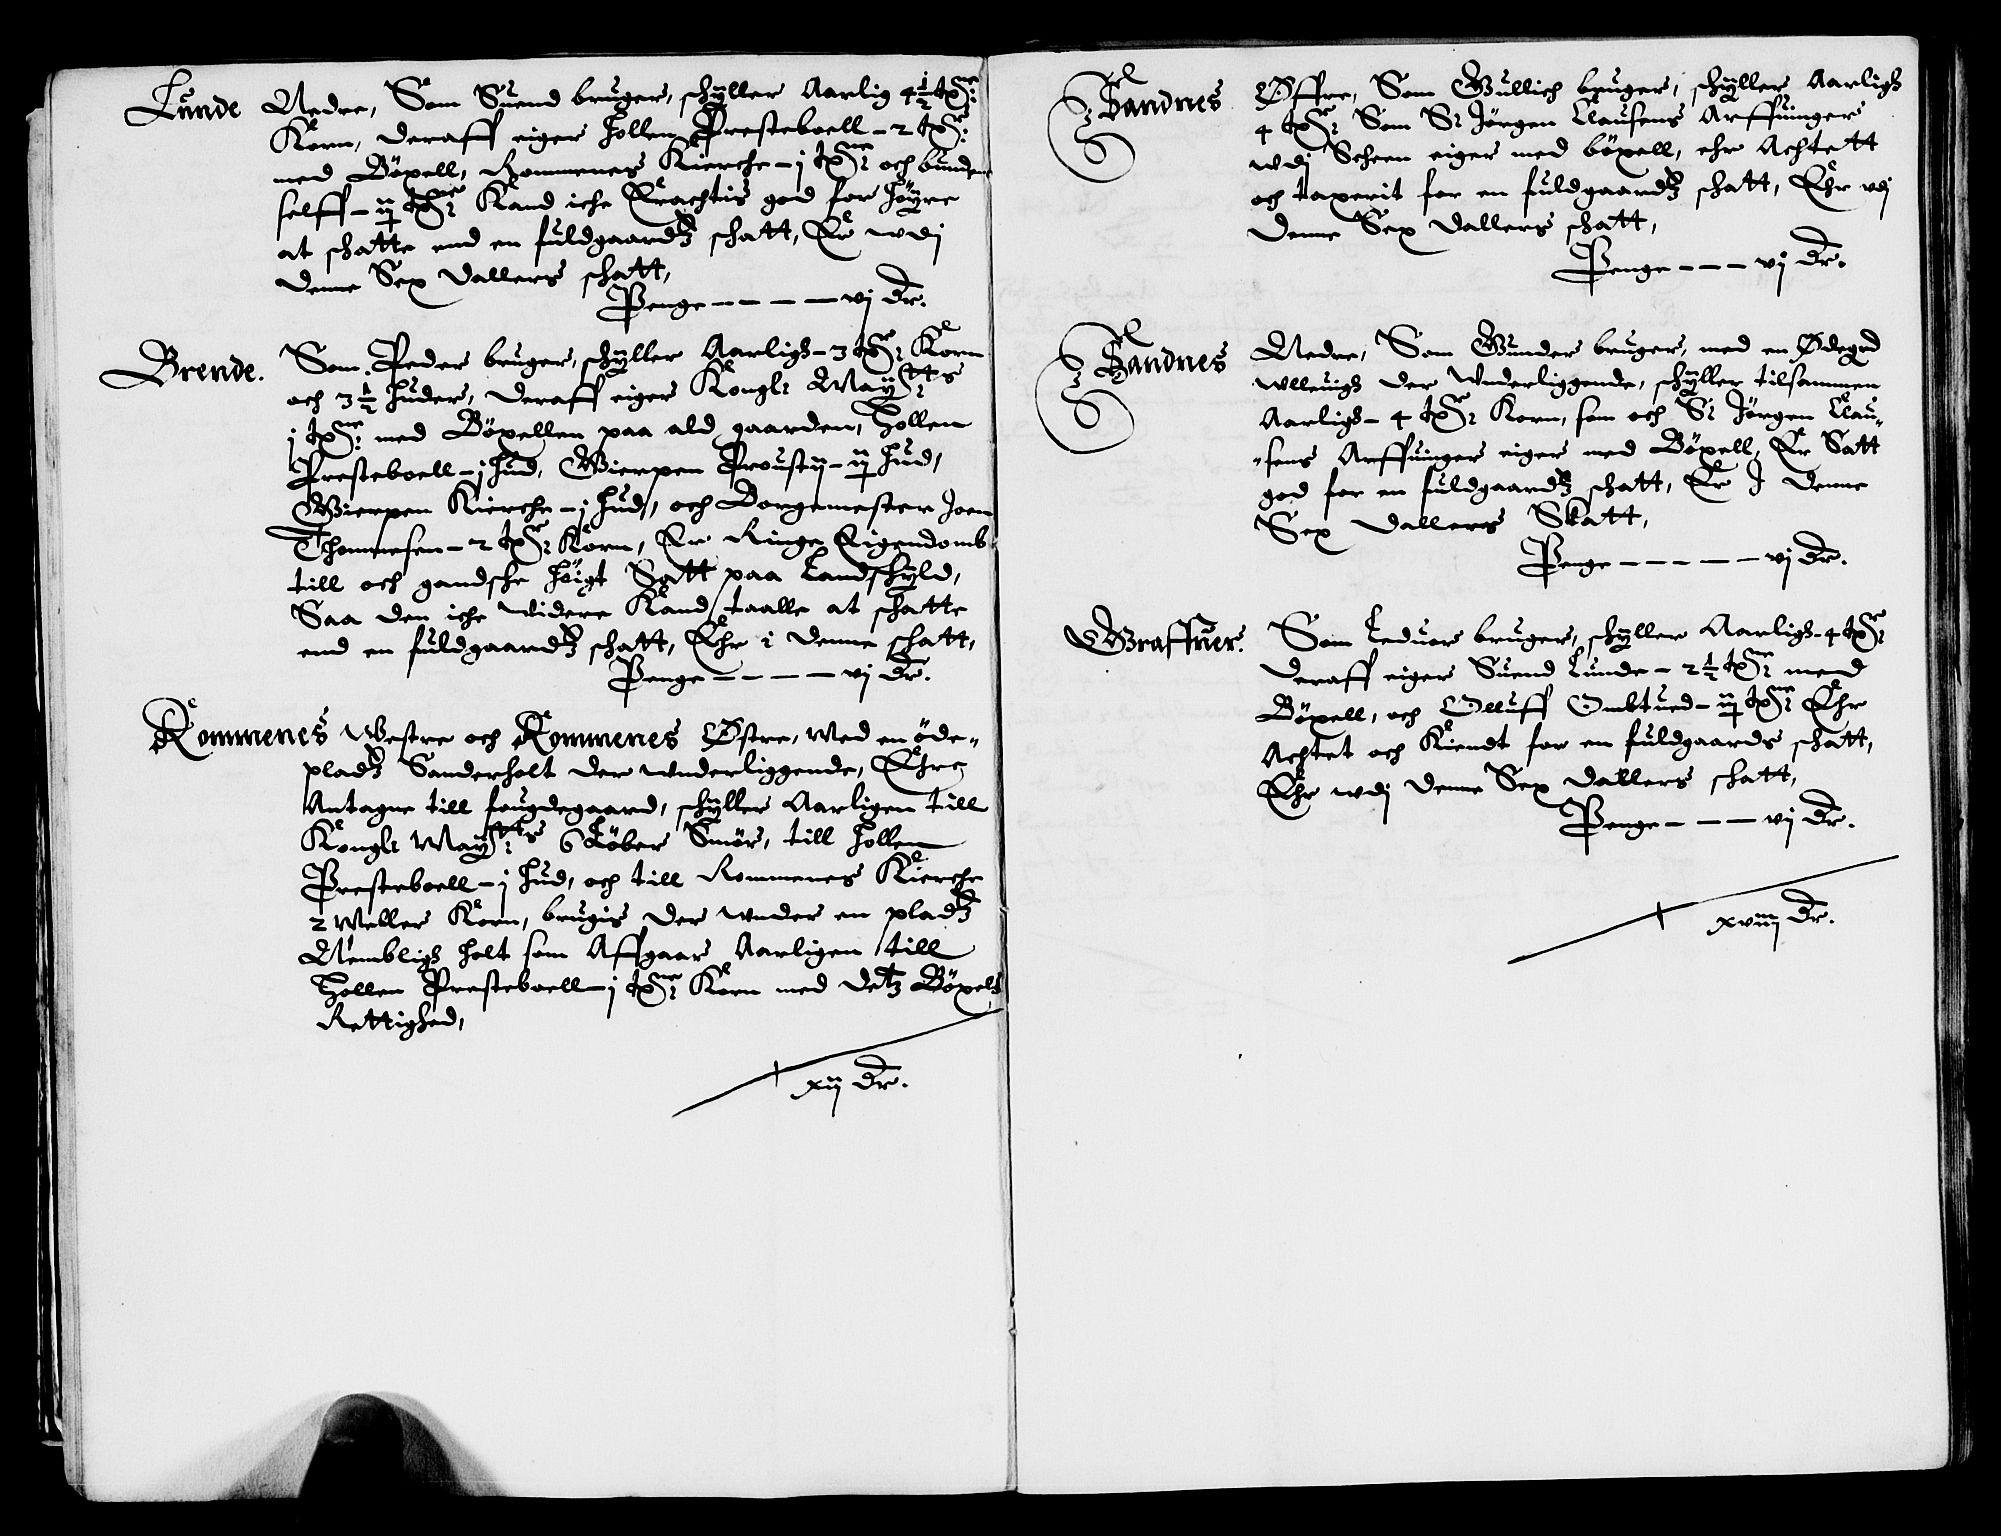 Lunde Nedre, Som Suend bruger, schyller Aarlig 4½ tør:
Korn, deraff eiger Hollen Presteboell - 2 tør:
med Böxell, Rommenes Kierche - j tne: och bunden
selff - ij tne: Kand iche Erachtis god for høyre
at schatte end en fuldgaardtz schatt, Er wdj
denne Sex dallers schatt,
Penge - - - - - vj dr.
Brende. Som Peder bruger, schyller Aarligh - 3 tør: Korn
och 3½ huder, deraff eiger Kongl: May:tts
j tne: med Böxellen paa ald gaarden, Hollen
Presteboell - j hud, Gierpen Proustij - ij hud,
Gierpen Kierche - j hud, och Borgemester Joen
Thommesen - 2 tør: Korn, Er Ringe Eigendomb
till och gandsche høigt Satt paa Landschyld,
Saa den iche widere Kand taalle at schatte
end en fuldgaardtz schatt, Ehr i denne schatt,
Penge - - - - - vj dr.
Rommenes Westre och Rommenes Østre, Med en öde-
pladtz Sanderholt der wnderliggende, Ehre
Antagne till fougdegaard, schyller Aarligen till
Kongl: May:tts 6 Løber Smör, till Hollen
Presteboell - j hud, och till Rommenes Kierche
2 Meller Korn, brugis der wnder en pladtz
Nembligh Holt som Affgaar Aarligen till
Hollen Presteboell - j tne: Korn med detz Böxels
Rettighed,
xij dr.
Sandnes Øffre, Som Gullich bruger, schyller Aarligh
4 tør: Som S: Jørgen Clausens Arffuinger
wdj Scheen eiger med böxell, ehr Achtett
och taxerit for en fuldgaardtz schatt, Ehr vdj
denne Sex dallers schatt,
Penge - - - vj dr.
Sandnes Nedre, Som Gunder bruger, med en Ødegrd
Wlleuigh der Wnderliggende, schyller tilsammen
Aarligh - 4 tør: Korn, som och S: Jørgen Clau-
-sens Arffuinger eiger med Böxell, Er Satt
god for en fuldgaardtz schatt, Er J denne
Sex dallers Skatt,
Penge - - - - - vj dr.
Graffuer. Som Leduor bruger, schyller Aarligh - 4 tør:
deraff eiger Suend Lunde - 2½ tne: med
Böxell, och Olluff Ombtued - ij tne: Ehr
Achtet och Kiendt for en fuldgaards schatt,
Ehr wdj denne Sex dallers schatt,
Penge - - - - vj dr.
xviij dr.